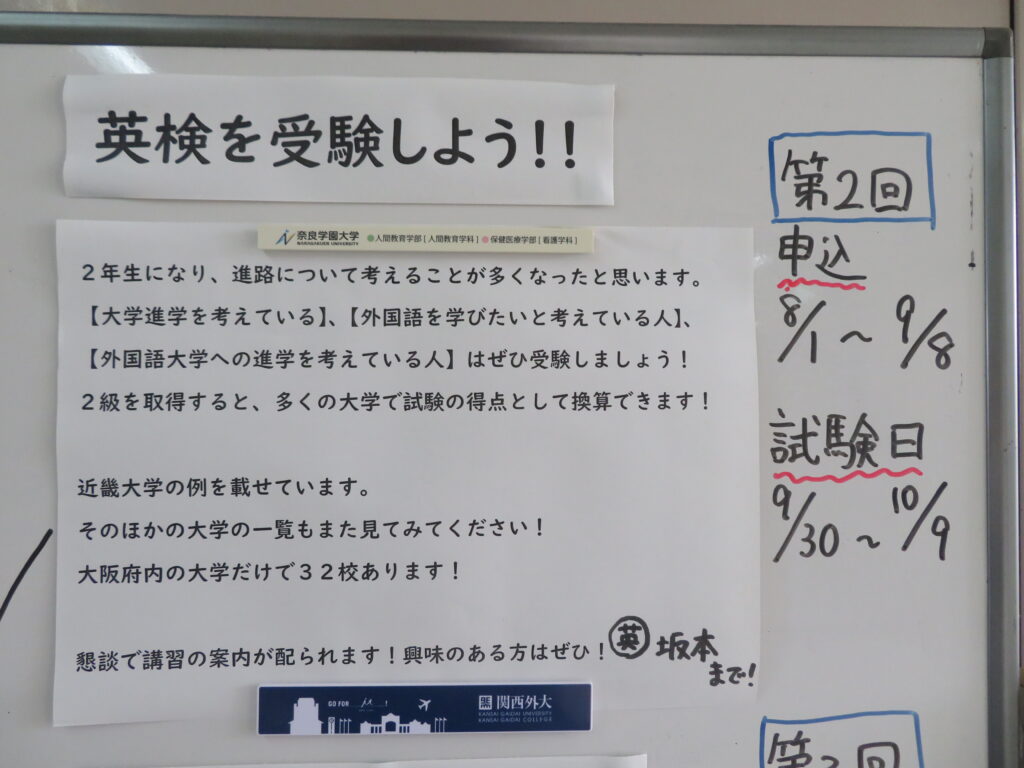 英検を受験しよう!!
奈良学園大学
NARAGAKUEN UNIVERSITY
●人間教育学部[人間教育学科] ●保健医療学部[看護学科]
2年生になり、進路について考えることが多くなったと思います。
【大学進学を考えている】、【外国語を学びたいと考えている人】、
【外国語大学への進学を考えている人】はぜひ受験しましょう!
2級を取得すると、多くの大学で試験の得点として換算できます!
近畿大学の例を載せています。
そのほかの大学の一覧もまた見てみてください!
大阪府内の大学だけで32校あります!
懇談で講習の案内が配られます!興味のある方はぜひ!
英 坂本
まで!
GO FOR
関西外大
KANSAI GAIDAI UNIVERSITY
KANSAI GAIDAI COLLEGE
第2回
申込
8/1 ~ 9/8
試験日
9/30 ~ 10/9